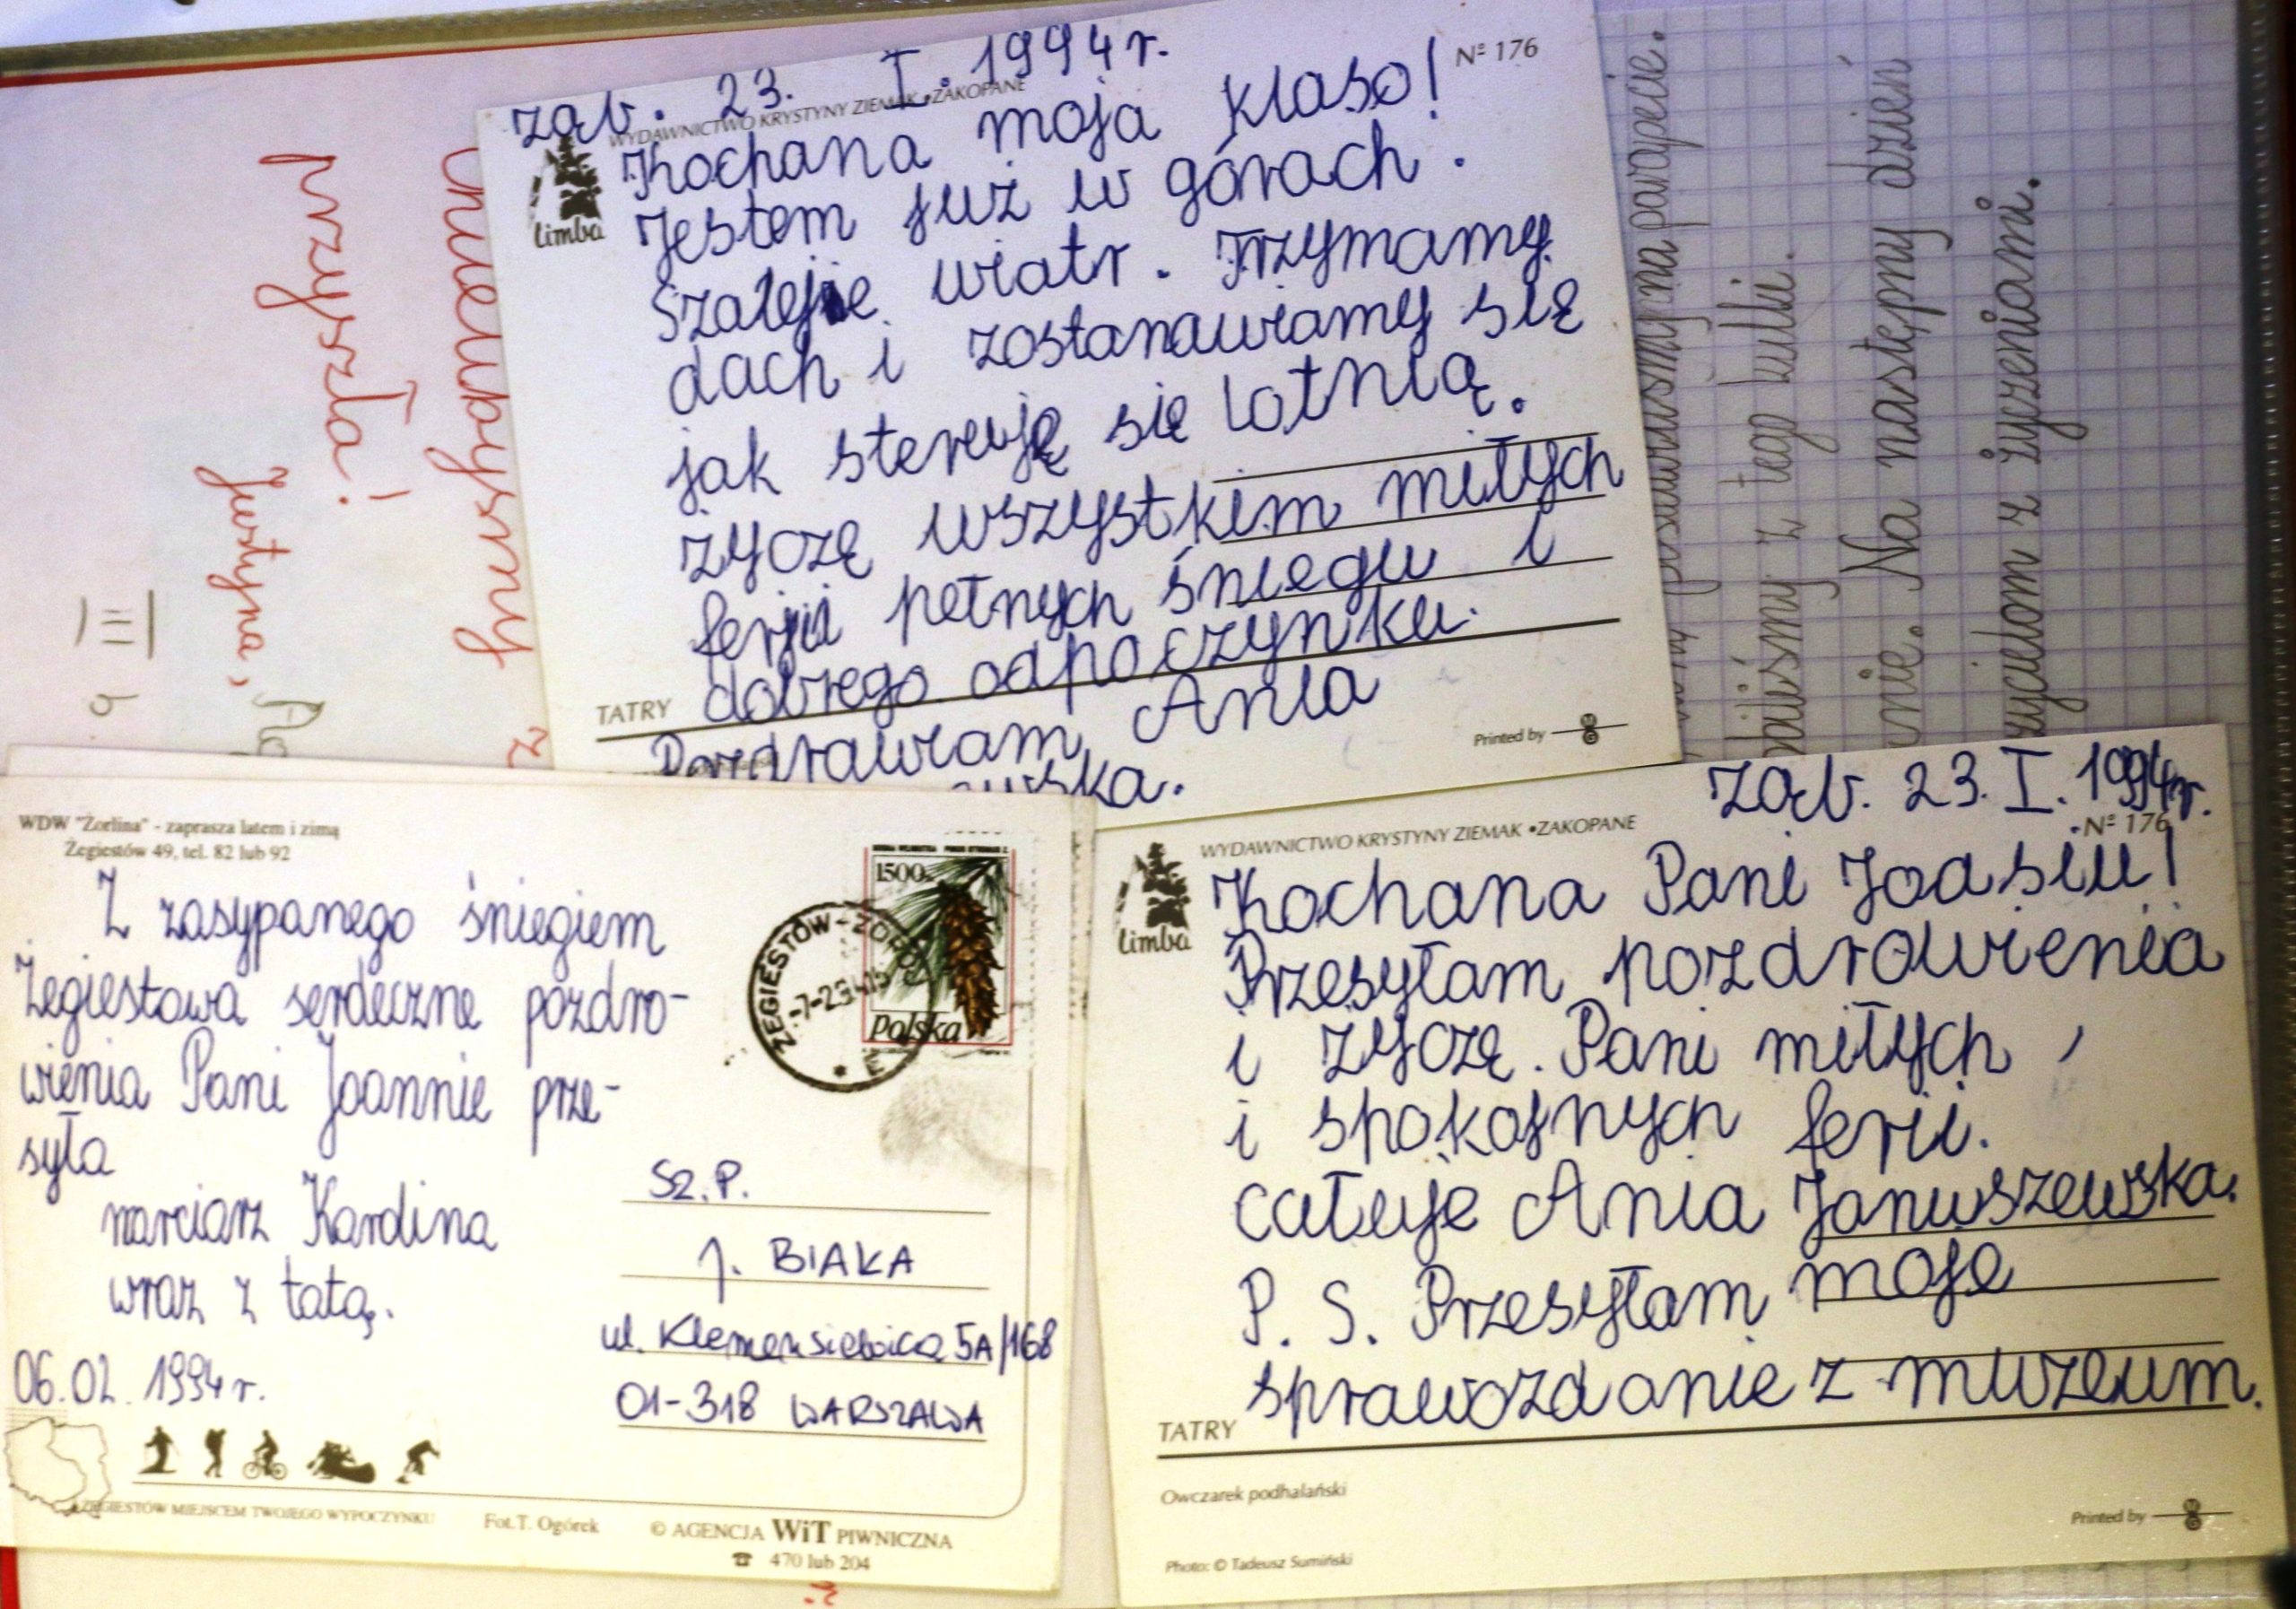 ząb. 23. I. 1994 r.
WYDAWNICTWO KRYSTYNY ZIEMAK •ZAKOPANE
Nº 176
limba
Kochana moja klaso!
Jestem już w górach.
Szaleje wiatr. Trzymamy
dach i zostanawiamy się
jak steruję się lotnią.
życzę wszystkim miłych
ferii pełnych śniegu i
dobrego odpoczynku.
TATRY
Pozdrawiam Ania
wska.
Printed by
przyszła!
Justyna,
na parapecie.
z tego kulki.
Na następny dzień
z życzeniami.
WDW "Żorlina" - zaprasza latem i zimą
Żegiestów 49, tel. 82 lub 92
Z zasypanego śniegiem
Żegiestowa serdeczne pozdro-
wienia Pani Joannie prze-
syła
narciarz Karolina
wraz z tatą.
06.02.1994 r.
1500
polska
ŻEGIESTÓW-
Sz. P.
J. BIAKA
ul. Klemensiewicza 5A/168
01-318 WARSZAWA
ŻEGIESTÓW MIEJSCEM TWOJEGO WYPOCZYNKU
Fot.T. Ogórek
© AGENCJA WiT PIWNICZNA
☎ 470 lub 204
ząb. 23. I. 1994r.
WYDAWNICTWO KRYSTYNY ZIEMAK •ZAKOPANE
Nº 176
limba
Kochana Pani Joasiu!
Przesyłam pozdrowienia
i życzę Pani miłych
i spokojnych ferii.
całuje Ania Januszewska.
P. S. Przesyłam moje
sprawozdanie z muzeum.
TATRY
Owczarek podhalański
Printed by
Photo: © Tadeusz Sumiński